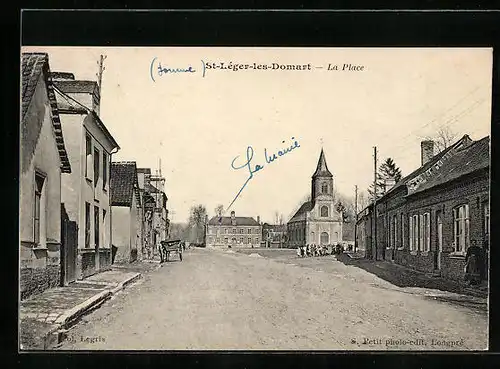 (Somme) St-Léger-les-Domart — La Place
La Mairie
Col. Legris
S. Petit photo-édit. Longpré